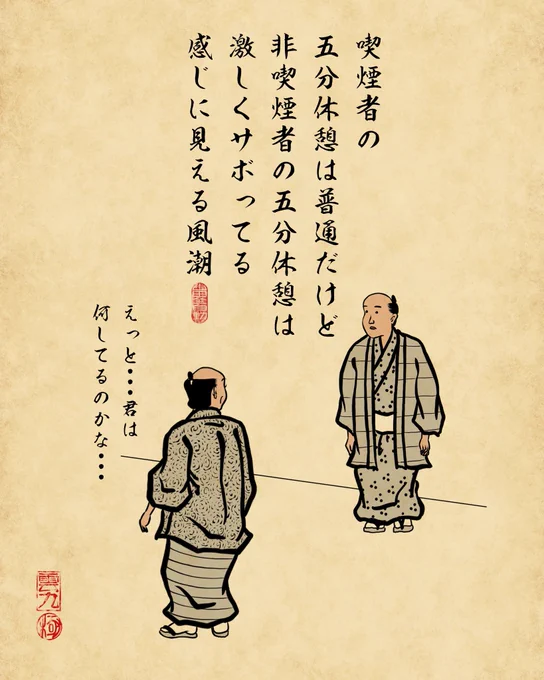 喫煙者の
五分休憩は普通だけど
非喫煙者の五分休憩は
激しくサボってる
感じに見える風潮
えっと・・・君は
何してるのかな・・・